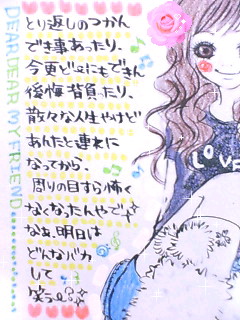 DEAR DEAR MY FRIEND
とり返しのつかん
でき事あったり、
今更どうにもできん
後悔背負ったり、
散々な人生やけど
あんたと連れに
なってから
周りの目すら怖く
なくなったんやで
なぁ、明日は
どんなバカ
して
笑う
LOVE